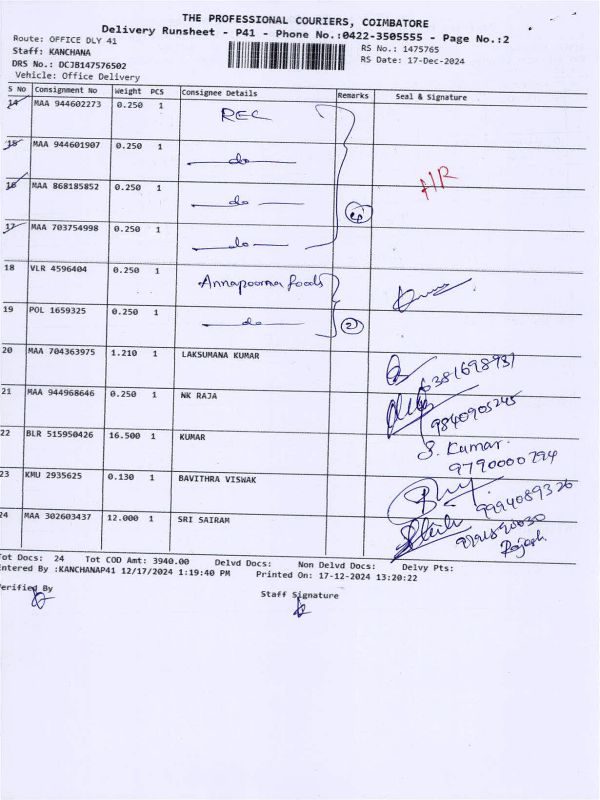 THE PROFESSIONAL COURIERS, COIMBATORE
Delivery Runsheet - P41 - Phone No.:0422-3505555 - Page No.:2
Route: OFFICE DLY 41
RS No.: 1475765
Staff: KANCHANA
RS Date: 17-Dec-2024
DRS No.: DCJB147576502
Vehicle: Office Delivery
S No Consignment No Weight PCS Consignee Details Remarks Seal & Signature
14 MAA 944602273 0.250 1 REC
15 MAA 944601907 0.250 1 do
16 MAA 868185852 0.250 1 do
4
17 MAA 703754998 0.250 1 do
18 VLR 4596404 0.250 1 Annapoorna foods
19 POL 1659325 0.250 1 do 2
20 MAA 704363975 1.210 1 LAKSUMANA KUMAR
6381698937
21 MAA 944968646 0.250 1 NK RAJA
9840905245
22 BLR 515950426 16.500 1 KUMAR S. Kumar.
9790000794
23 KMU 2935625 0.130 1 BAVITHRA VISWAK
9994089326
24 MAA 302603437 12.000 1 SRI SAIRAM
Rajesh
Tot Docs: 24 Tot COD Amt: 3940.00 Delvd Docs: Non Delvd Docs: Delvy Pts:
Entered By :KANCHANAP41 12/17/2024 1:19:40 PM Printed On: 17-12-2024 13:20:22
Verified By
Staff Signature